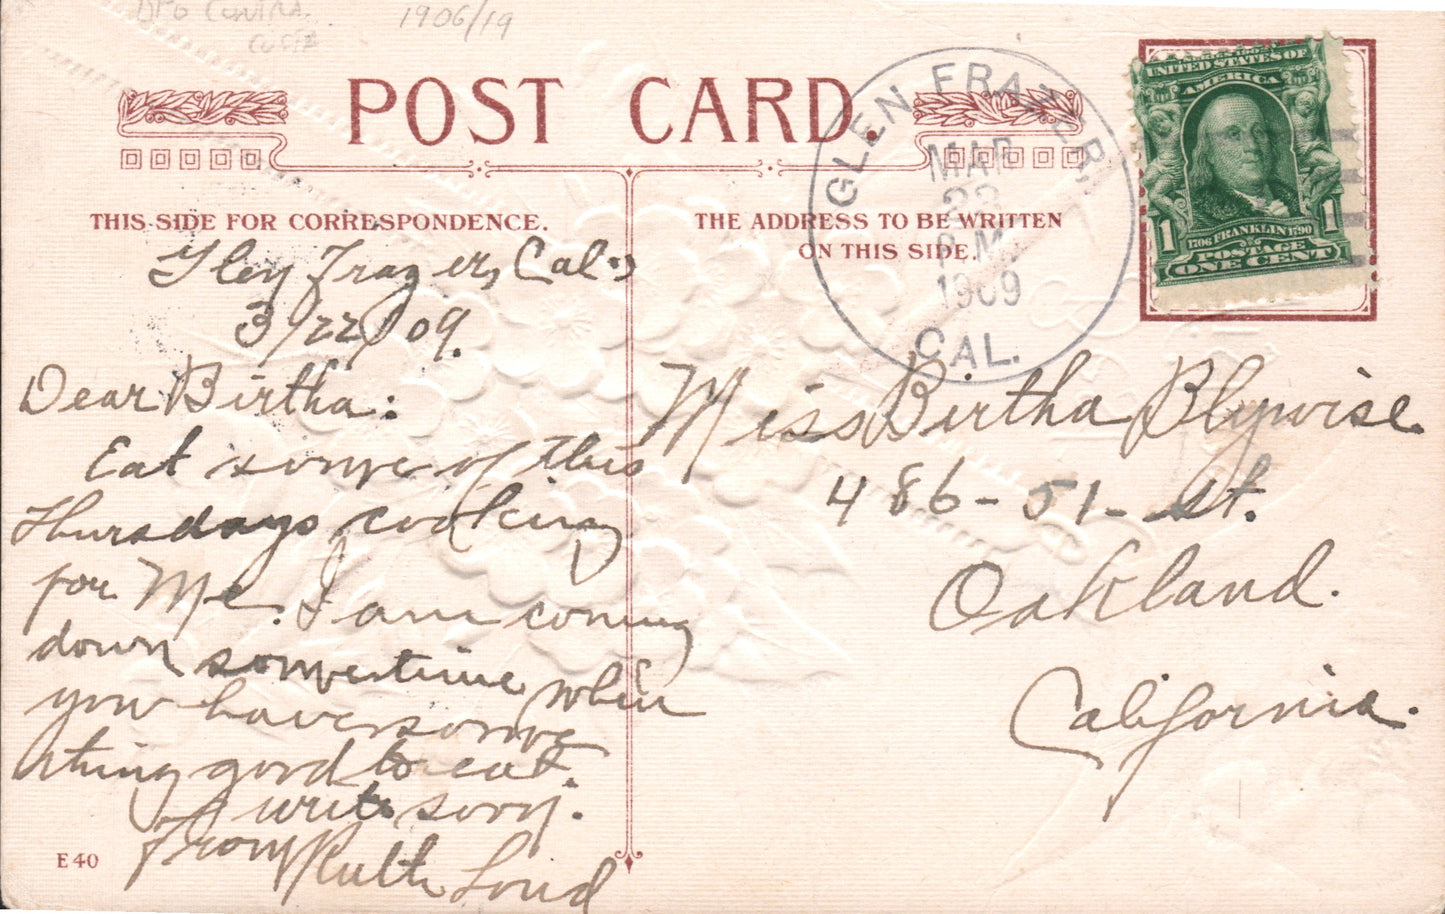 DPO CONTRA
COSTA
1906/19
POST CARD.
THIS SIDE FOR CORRESPONDENCE.
THE ADDRESS TO BE WRITTEN
ON THIS SIDE.
GLEN FRAZER,
MAR
22
P.M.
1909
CAL.
UNITED STATES OF
AMERICA
1706 FRANKLIN 1790
POSTAGE
1 1
ONE CENT
Glen Frazer, Cal.,
3/22/09.
Dear Birtha:
Eat some of this
Thursdays cooking
for Me. I am coming
down sometime when
you have some
thing good to eat.
write soon.
From Ruth Loud
E 40
Miss Birtha Blywise.
486-51-st.
Oakland.
California.